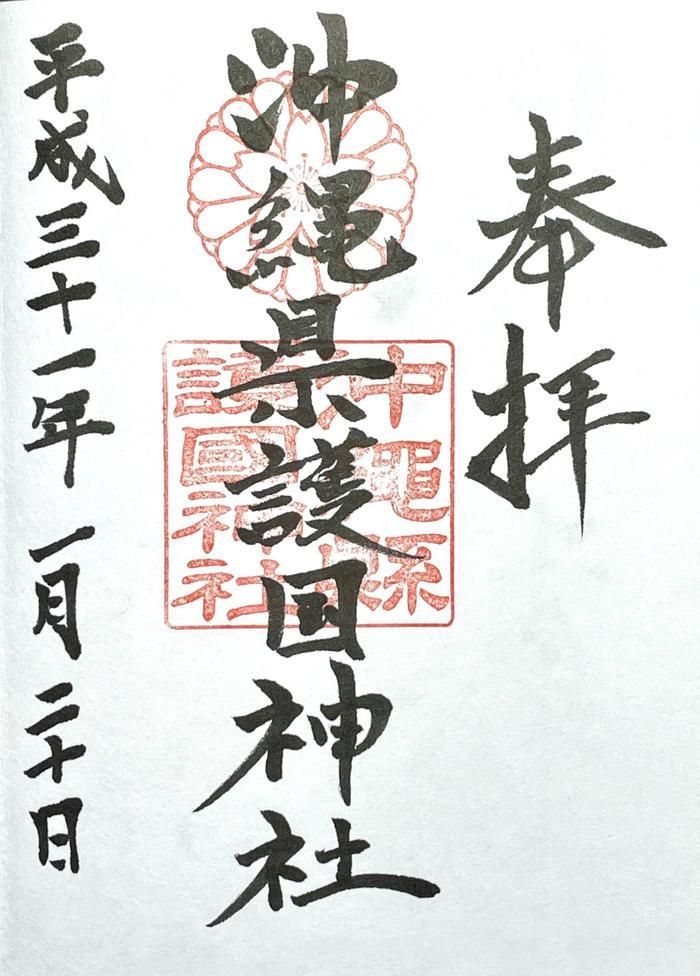 奉拝
沖縄県護国神社
沖縄縣
護國神社
平成三十一年一月二十日